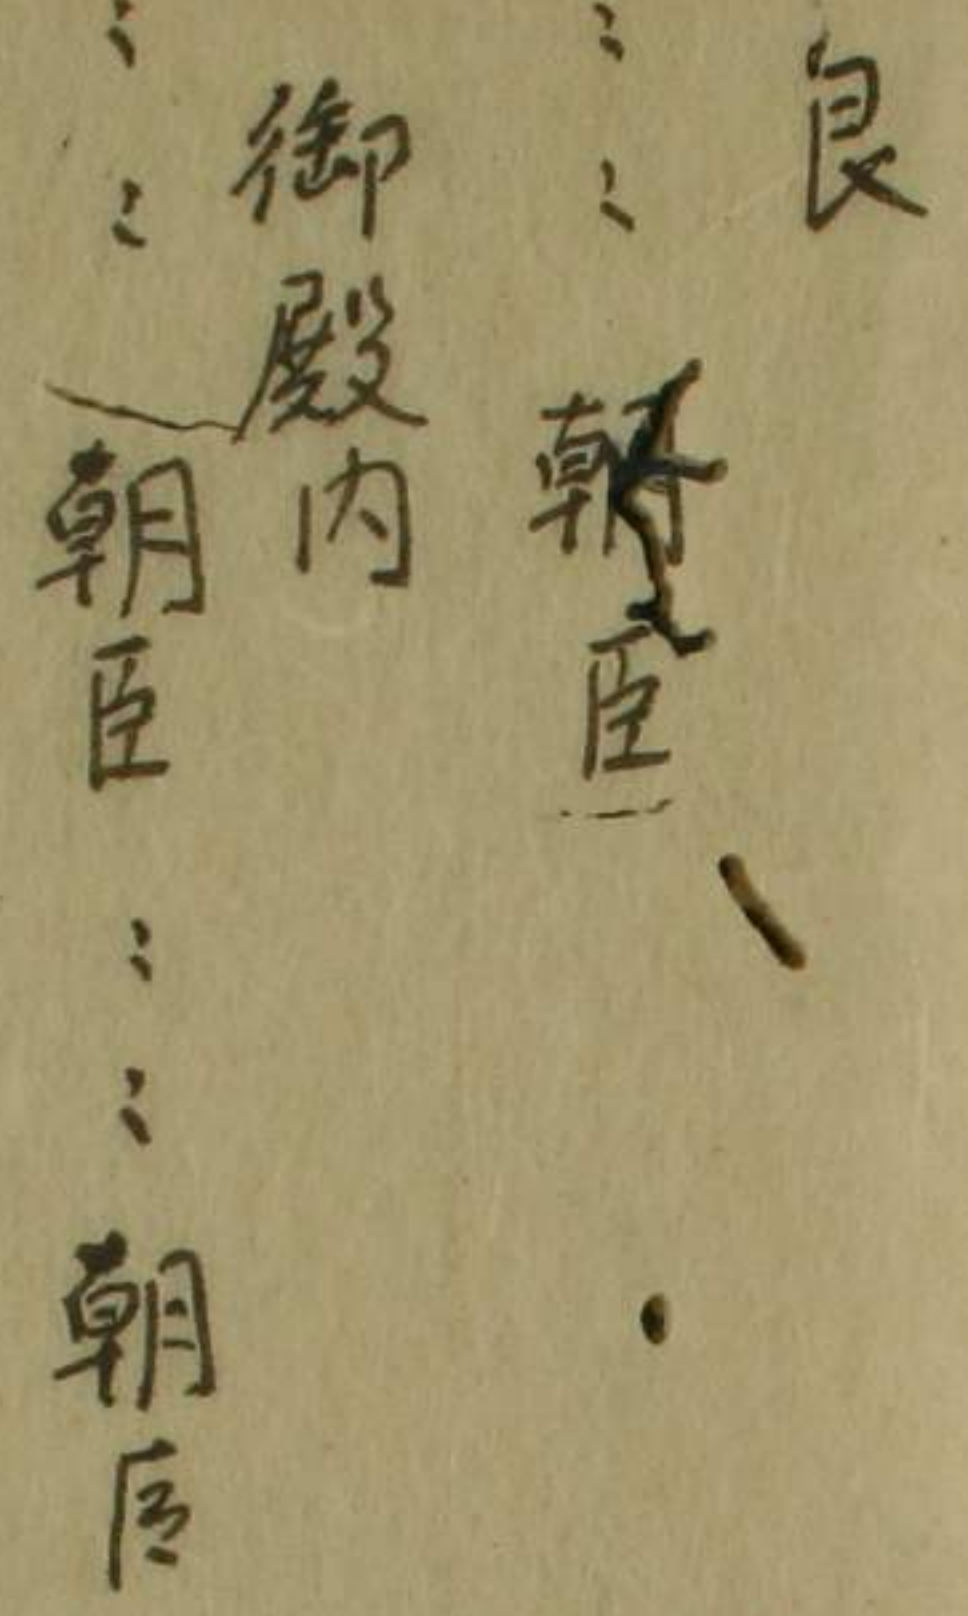 良
〻〻朝臣
御殿内
〻〻朝臣〻〻朝臣